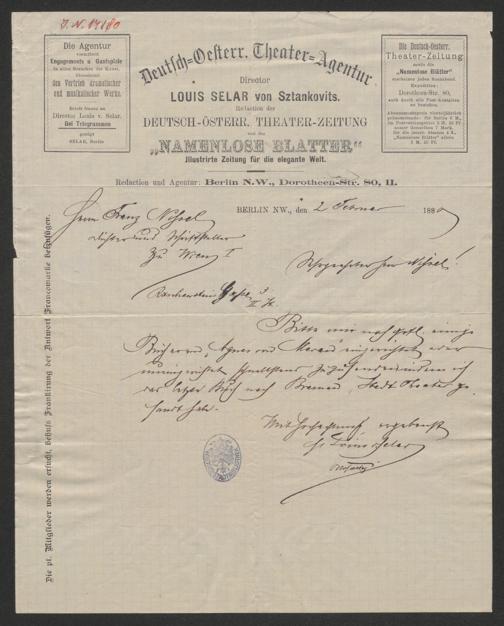 J. N. 17180
Die Agentur
vermittelt
Engagements u. Gastspiele
in allen Branchen der Kunst.
Übernimmt
den Vertrieb dramatischer
und musikalischer Werke.
Briefe franco an
Director Louis v. Selar.
Bei Telegrammen
genügt
SELAR, Berlin
Deutsch=Oesterr. Theater=Agentur.
Director
LOUIS SELAR von Sztankovits.
Redaction der
DEUTSCH-ÖSTERR. THEATER-ZEITUNG
und der
„NAMENLOSE BLÄTTER“
Illustrirte Zeitung für die elegante Welt.
Die Deutsch-Oesterr.
Theater-Zeitung
sowie die
"Namenlose Blätter"
erscheinen jeden Sonnabend.
Expedition:
Dorotheen-Str. 80,
auch durch alle Post-Anstalten
zu beziehen.
Redaction und Agentur: Berlin N.W., Dorotheen-Str. 80, II.
BERLIN NW., den 2 Februar 188
Herrn Franz Nissel
Dichter und Schriftsteller
Zu Wien I
Sehrgeehrter Herr Nissel!
Bitte mir noch gefl. einige
Bücher von „Agnes von Meran“ eingerichtet oder
uneingerichtet schnellstens zuzusenden indem ich
das letzte Buch nach Bremen, Stadt Theater ge-
sandt habe.
Mit Hochachtung ergebenst
Louis Selar
Die pl. Mitglieder werden ersucht, behufs Frankirung der Antwort Francomarke beizufügen.